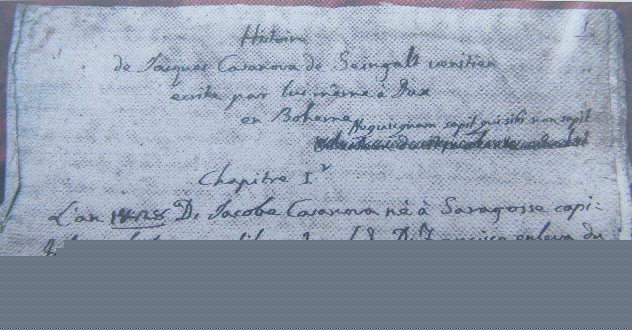 Histoire
de Jacques Casanova de Seingalt venitien
ecrite par lui même à Dux
en Boheme
Nequicquam sapit qui sibi non sapit
Chapitre I.r
L'an 1428 D. Jacobe Casanova né à Saragosse capi-
D. Francisco enleva du